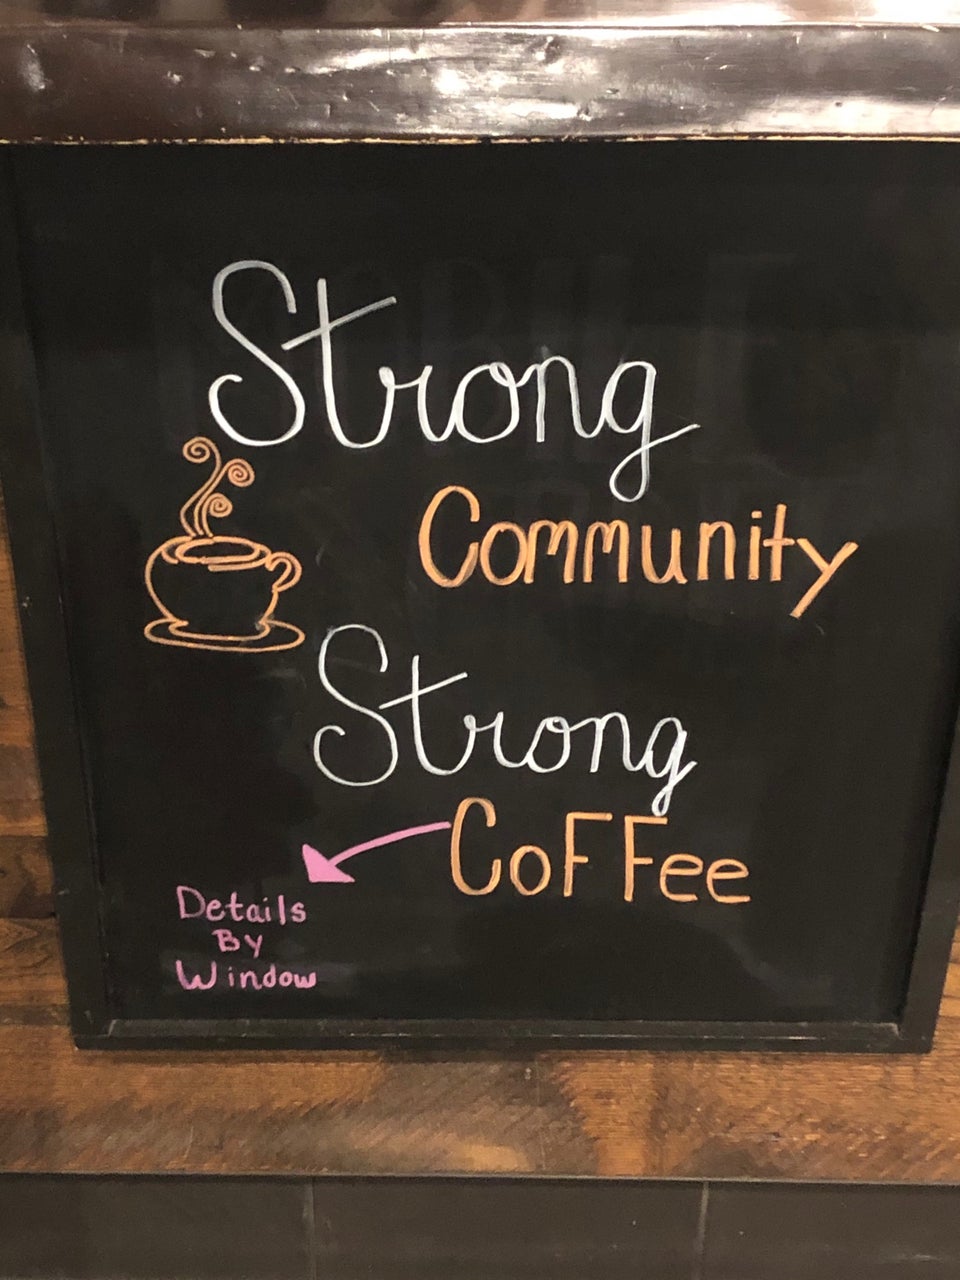 Strong
Community
Strong
CoFFee
Details
By
Window